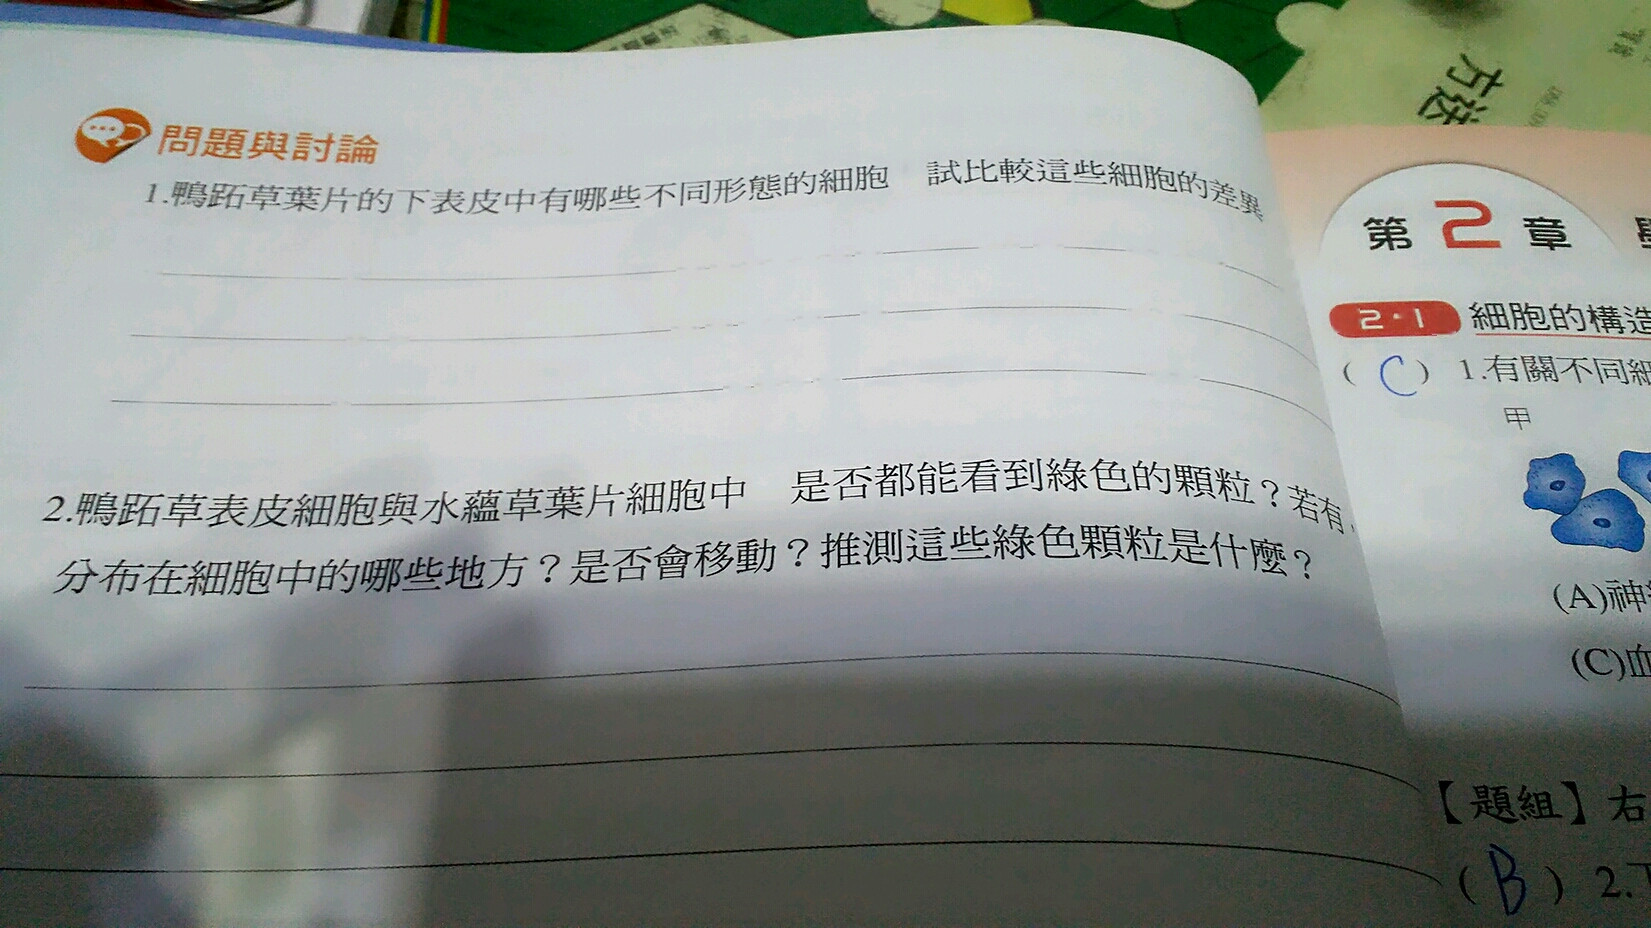 問題與討論
1.鴨跖草葉片的下表皮中有哪些不同形態的細胞 試比較這些細胞的差異
2.鴨跖草表皮細胞與水蘊草葉片細胞中 是否都能看到綠色的顆粒？若有，
分布在細胞中的哪些地方？是否會移動？推測這些綠色顆粒是什麼？
方送
第2章
2·1 細胞的構造
( C ) 1.有關不同細
甲
(A)神
(C)血
【題組】右
( B ) 2.